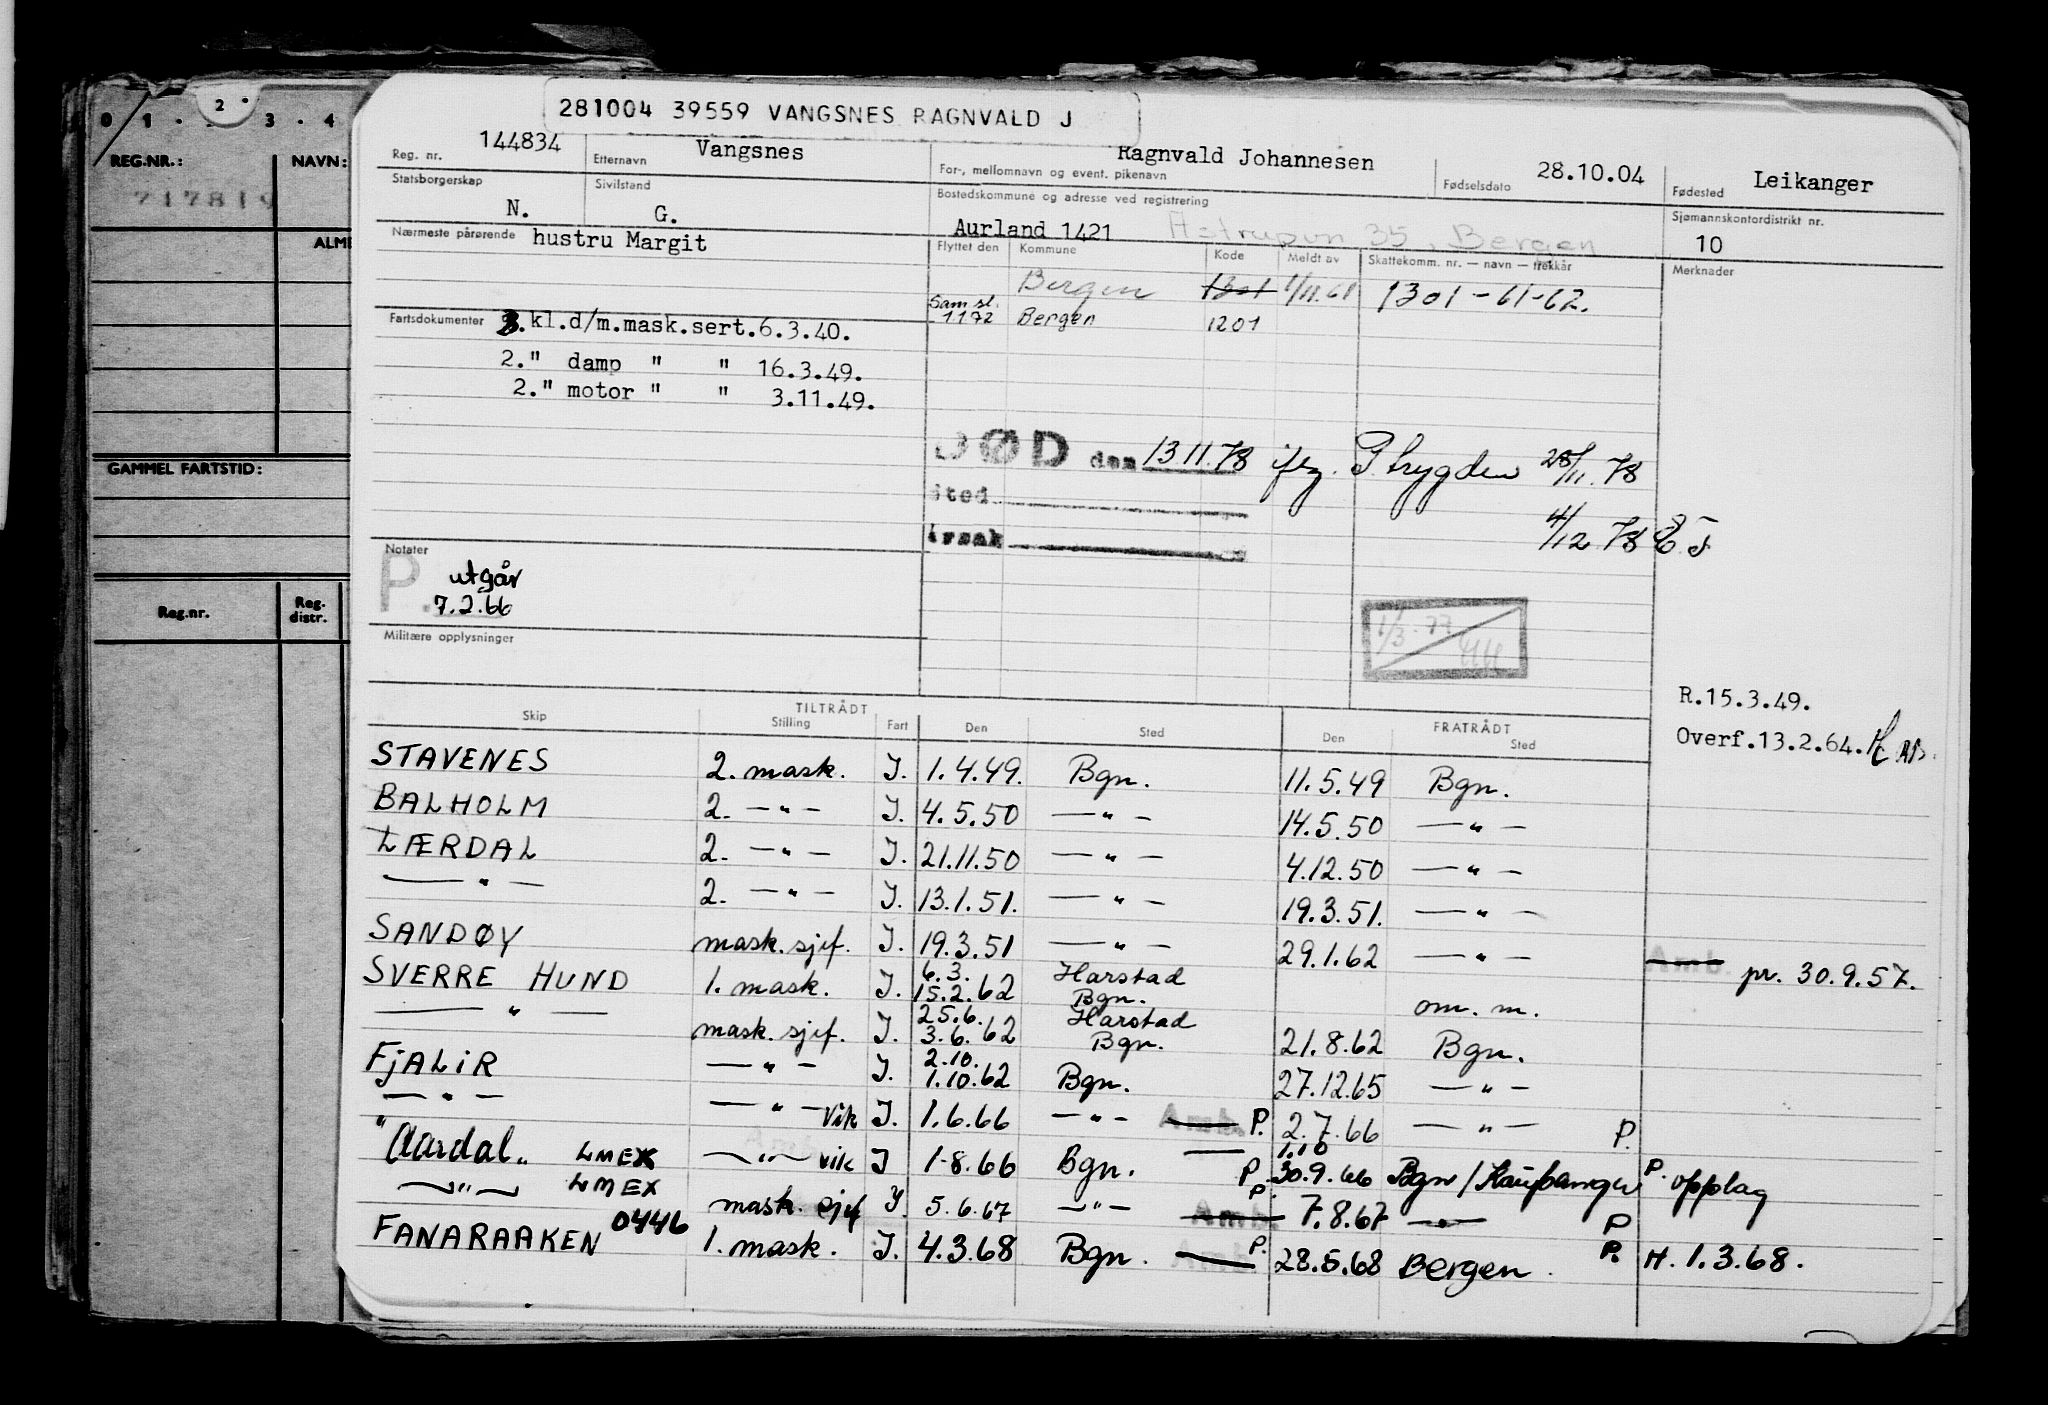 0 1 . 2 . 3 . 4
REG.NR.: NAVN:
717819
ALME
GAMMEL FARTSTID:
Reg.nr. Reg. distr.
281004 39559 VANGSNES RAGNVALD J
Reg. nr. 144834 Etternavn Vangsnes For-, mellomnavn og event. pikenavn Ragnvald Johannesen Fødselsdato 28.10.04 Fødested Leikanger
Statsborgerskap N. Sivilstand G. Bostedskommune og adresse ved registrering Aurland 1421 Astrupvn 35, Bergen Sjømannskontordistrikt nr. 10
Nærmeste pårørende hustru Margit
Flyttet den Kommune Kode Meldt av Skattekomm. nr. — navn — trekkår Merknader
Bergen 1301 1/11.61 1301-61-62.
Sam sl. 1172 Bergen 1201
Fartsdokumenter 3.kl.d/m.mask.sert.6.3.40.
2." damp " " 16.3.49.
2." motor " " 3.11.49.
DØD den 13 11.78 ifg. P.trygden 28/11.78
Sted
Årsak 4/12 78
Notater
P. utgår
7.2.66
Militære opplysninger
1/3.77
R.15.3.49.
Overf.13.2.64.
TILTRÅDT FRATRÅDT
Skip Stilling Fart Den Sted Den Sted
STAVENES 2. mask. J. 1.4.49. Bgn. 11.5.49 Bgn.
BALHOLM 2. — " — J. 4.5.50 — " — 14.5.50 — " —
LÆRDAL 2. — " — J. 21.11.50 — " — 4.12.50 — " —
— " — 2. — " — J. 13.1.51. — " — 19.3.51. — " —
SANDØY mask.sjef. J. 19.3.51 — " — 29.1.62 — " — Amb. pr. 30.9.57.
SVERRE HUND 1. mask. J. 6.3. 15.2.62 Harstad Bgn. om. m.
— " — mask.sjef. J. 25.6. 3.6.62 Harstad Bgn. 21.8.62 Bgn.
FJALIR — " — J. 2.10. 1.10.62 Bgn. 27.12.65 — " —
— " — — " — Vik J. 1.6.66 — " — Amb. P. 2.7.66 — " — P.
"Aardal" LMEX — " — vik J 1-8.66 Bgn. P. 1.10 30.9.66 Bgn/Kaupanger P. opplag
— " — LMEX mask. sjef J. 5.6.67 — " — Amb. P. 7.8.67 — " — P
FANARAAKEN 0446 1. mask. J. 4.3.68 Bgn. Amb. P. 28.5.68 Bergen. P. H. 1.3.68.